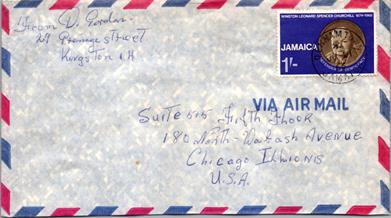 From D. Gordon
29 Street
Kingston 14
WINSTON LEONARD SPENCER CHURCHILL 1874-1965
JAMAICA
1/-
VIA AIR MAIL
Suite 515 Fifth Floor
180 North Wabash Avenue
Chicago Illinois
U.S.A.